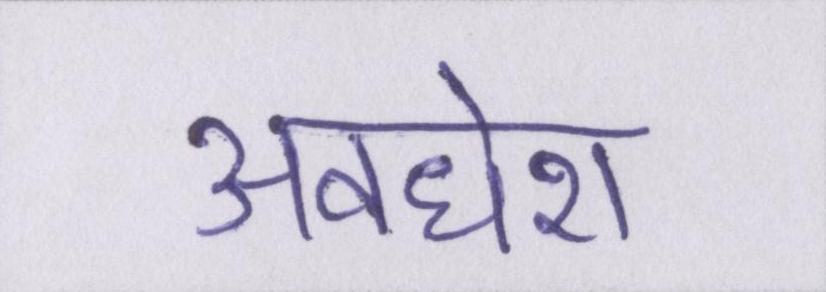 अवधेश